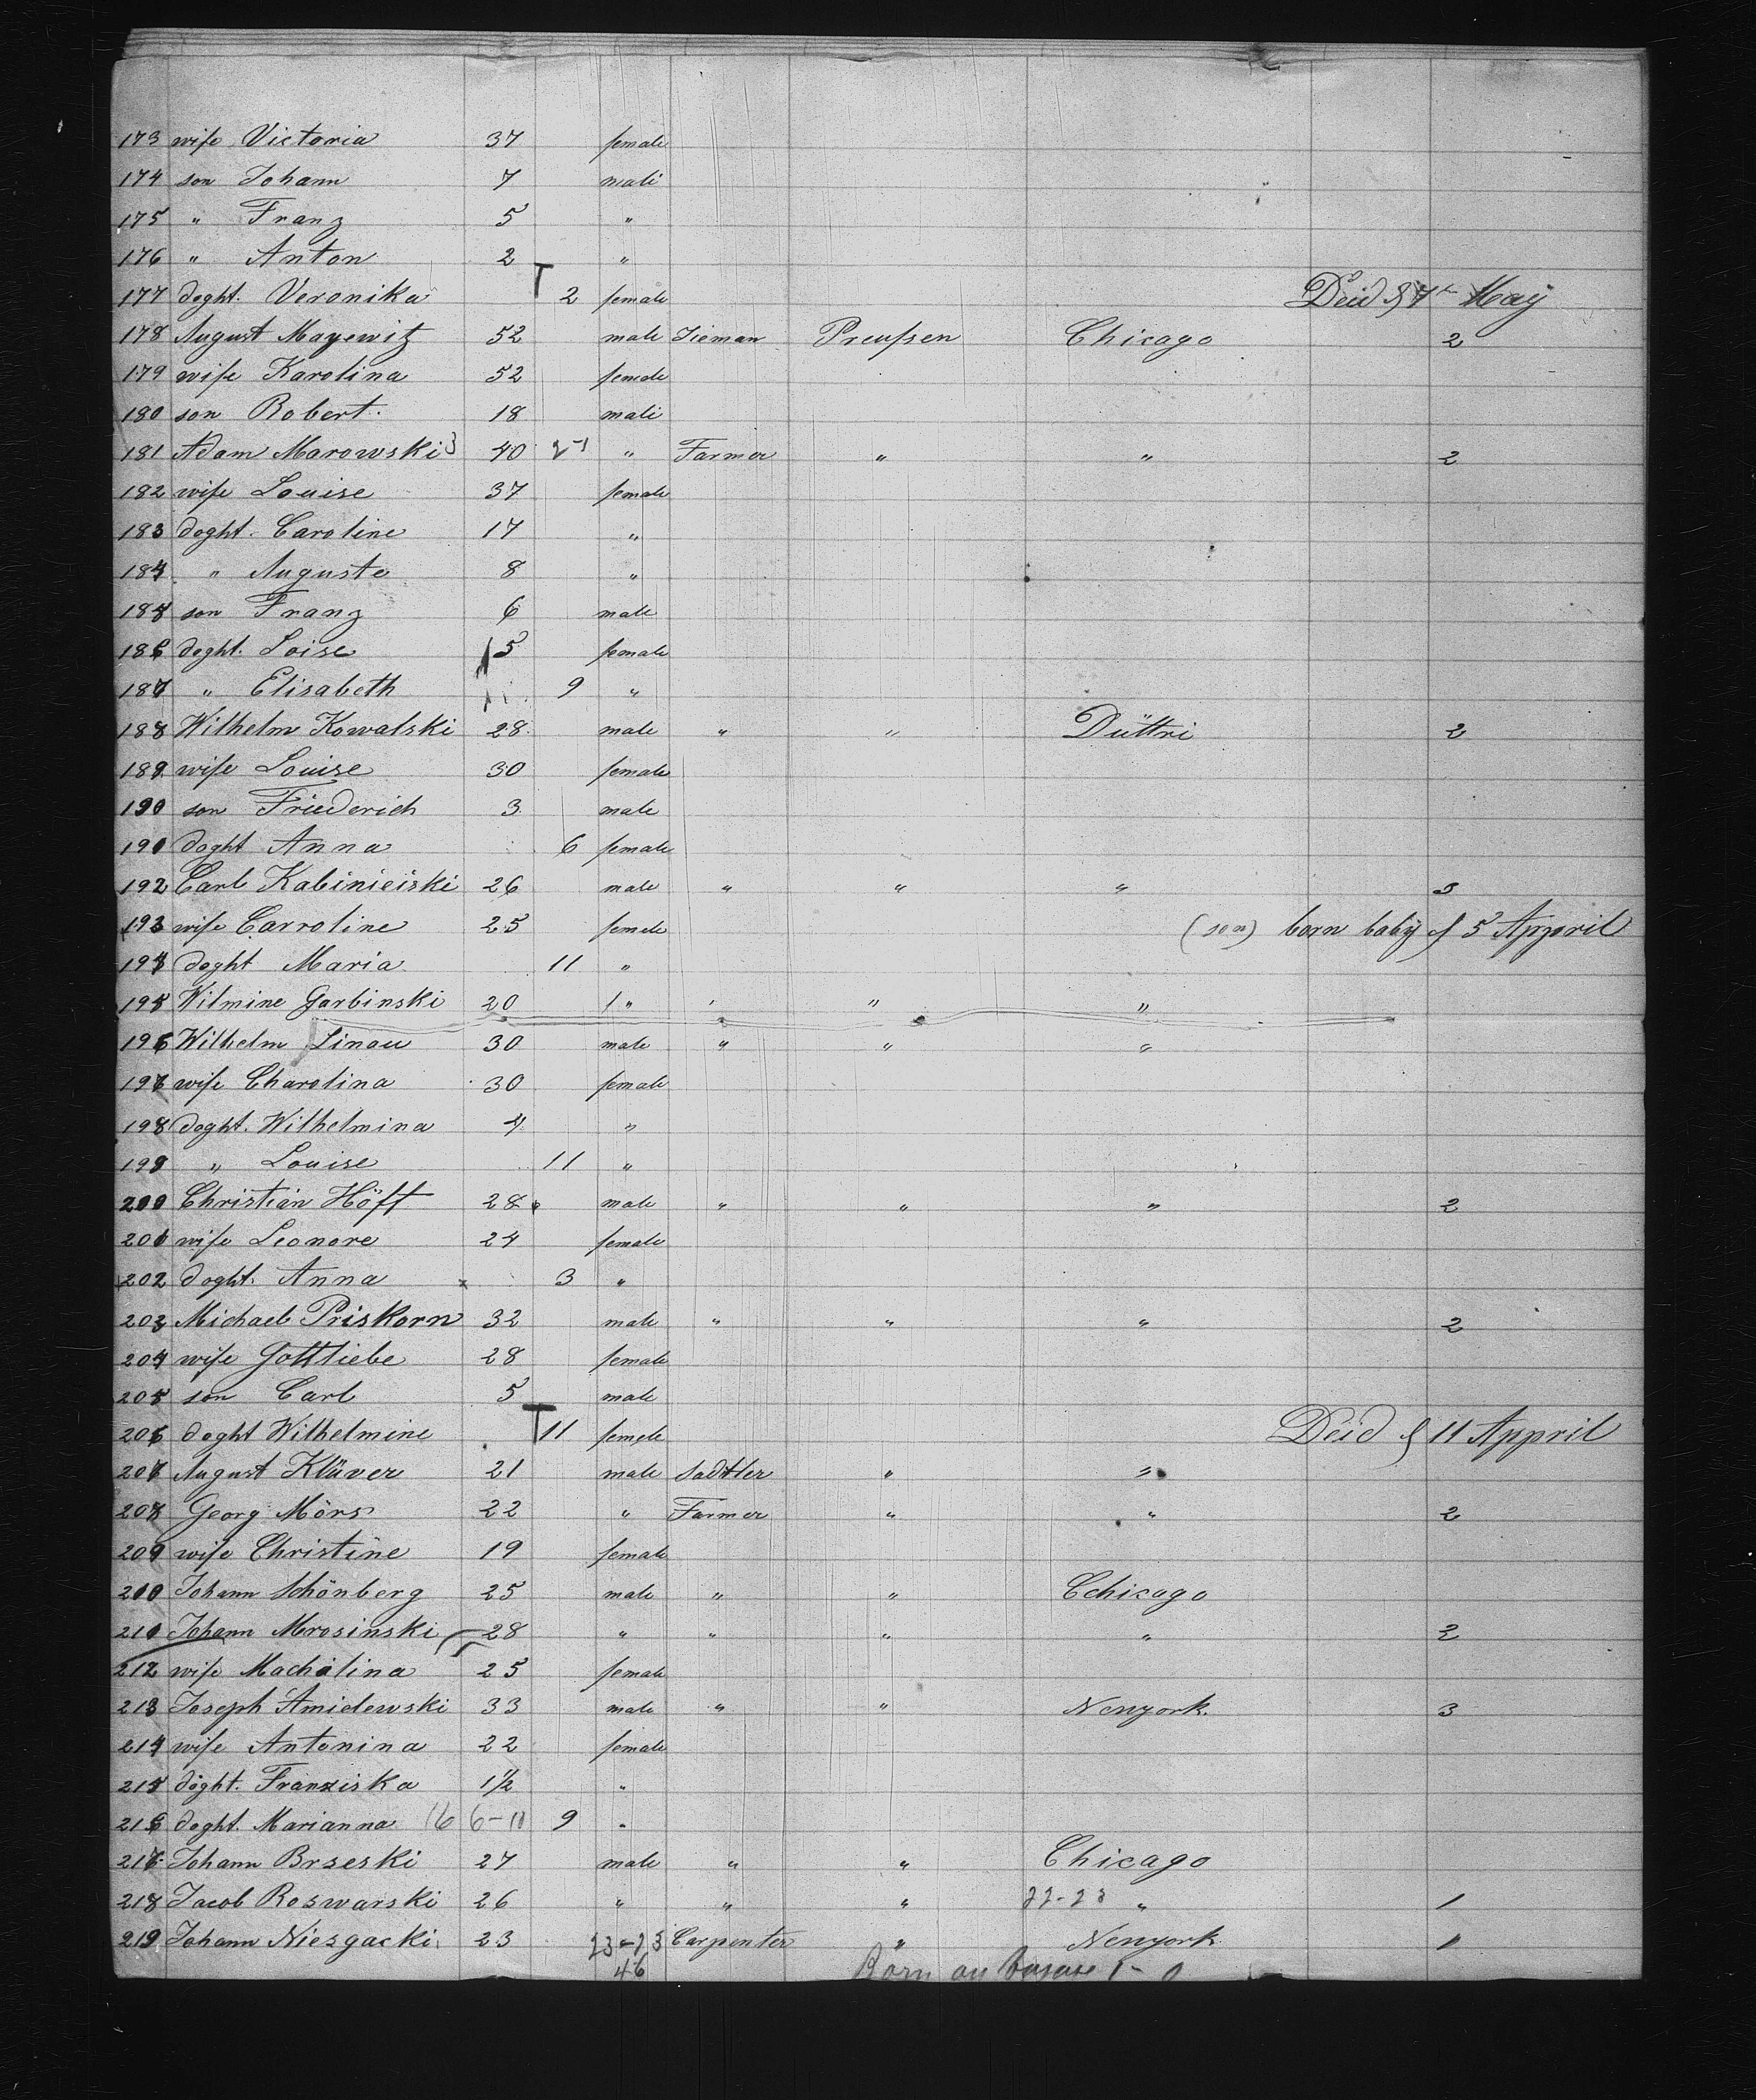 173 wife Victoria 37 female
174 son Johann 7 male
175 " Franz 5 "
176 " Anton 2 "
177 doght. Veronika T 2 female Deid 7 May
178 August Mayewitz 52 male Sieman Preußen Chicago 2
179 wife Karolina 52 female
180 son Robert. 18 male
181 Adam Marowski 40 " Farmer " " 2
182 wife Louise 37 female
183 doght. Caroline 17 "
184 " Auguste 8 "
185 son Franz 6 male
186 doght. Loise 5 female
187 " Elisabeth 9 "
188 Wilhelm Kowalski 28 male " " Düttri 2
189 wife Louise 30 female
190 son Friederich 3 male
191 doght Anna 6 female
192 Carl Kabinieiski 26 male " " " 3
193 wife Carroline 25 female (son) born baby 5 Appril
194 doght Maria 11 "
195 Wilmine Garbinski 20 1 " " " "
196 Wilhelm Linau 30 male " " "
197 wife Charolina 30 female
198 doght. Wilhelmina 4 "
199 " Louise 11 "
200 Christian Höft 28 male " " " 2
201 wife Leonore 24 female
202 doght. Anna x 3 "
203 Michael Priskorn 32 male " " " 2
204 wife Gottliebe 28 female
205 son Carl 5 male
206 doght Wilhelmine T 11 female Deid 11 Appril
207 August Klüver 21 male Sadtler " "
208 Georg Mörs 22 " Farmer " " 2
209 wife Christine 19 female
210 Johann Schönberg 25 male " " Cchicago
211 Johann Mrosinski 28 " " " " 2
212 wife Machalina 25 female
213 Joseph Amidewski 33 male " " Nenyork. 3
214 wife Antonina 22 female
215 doght. Franziska 1½ "
216 doght. Marianna 16 6-10 9 "
217 Johann Brseski 27 male " " Chicago
218 Jacob Roswarski 26 " " " 22-23 " 1
219 Johann Niesgacki 23 23-23 Carpenter " Nenyork 1
46 Born on